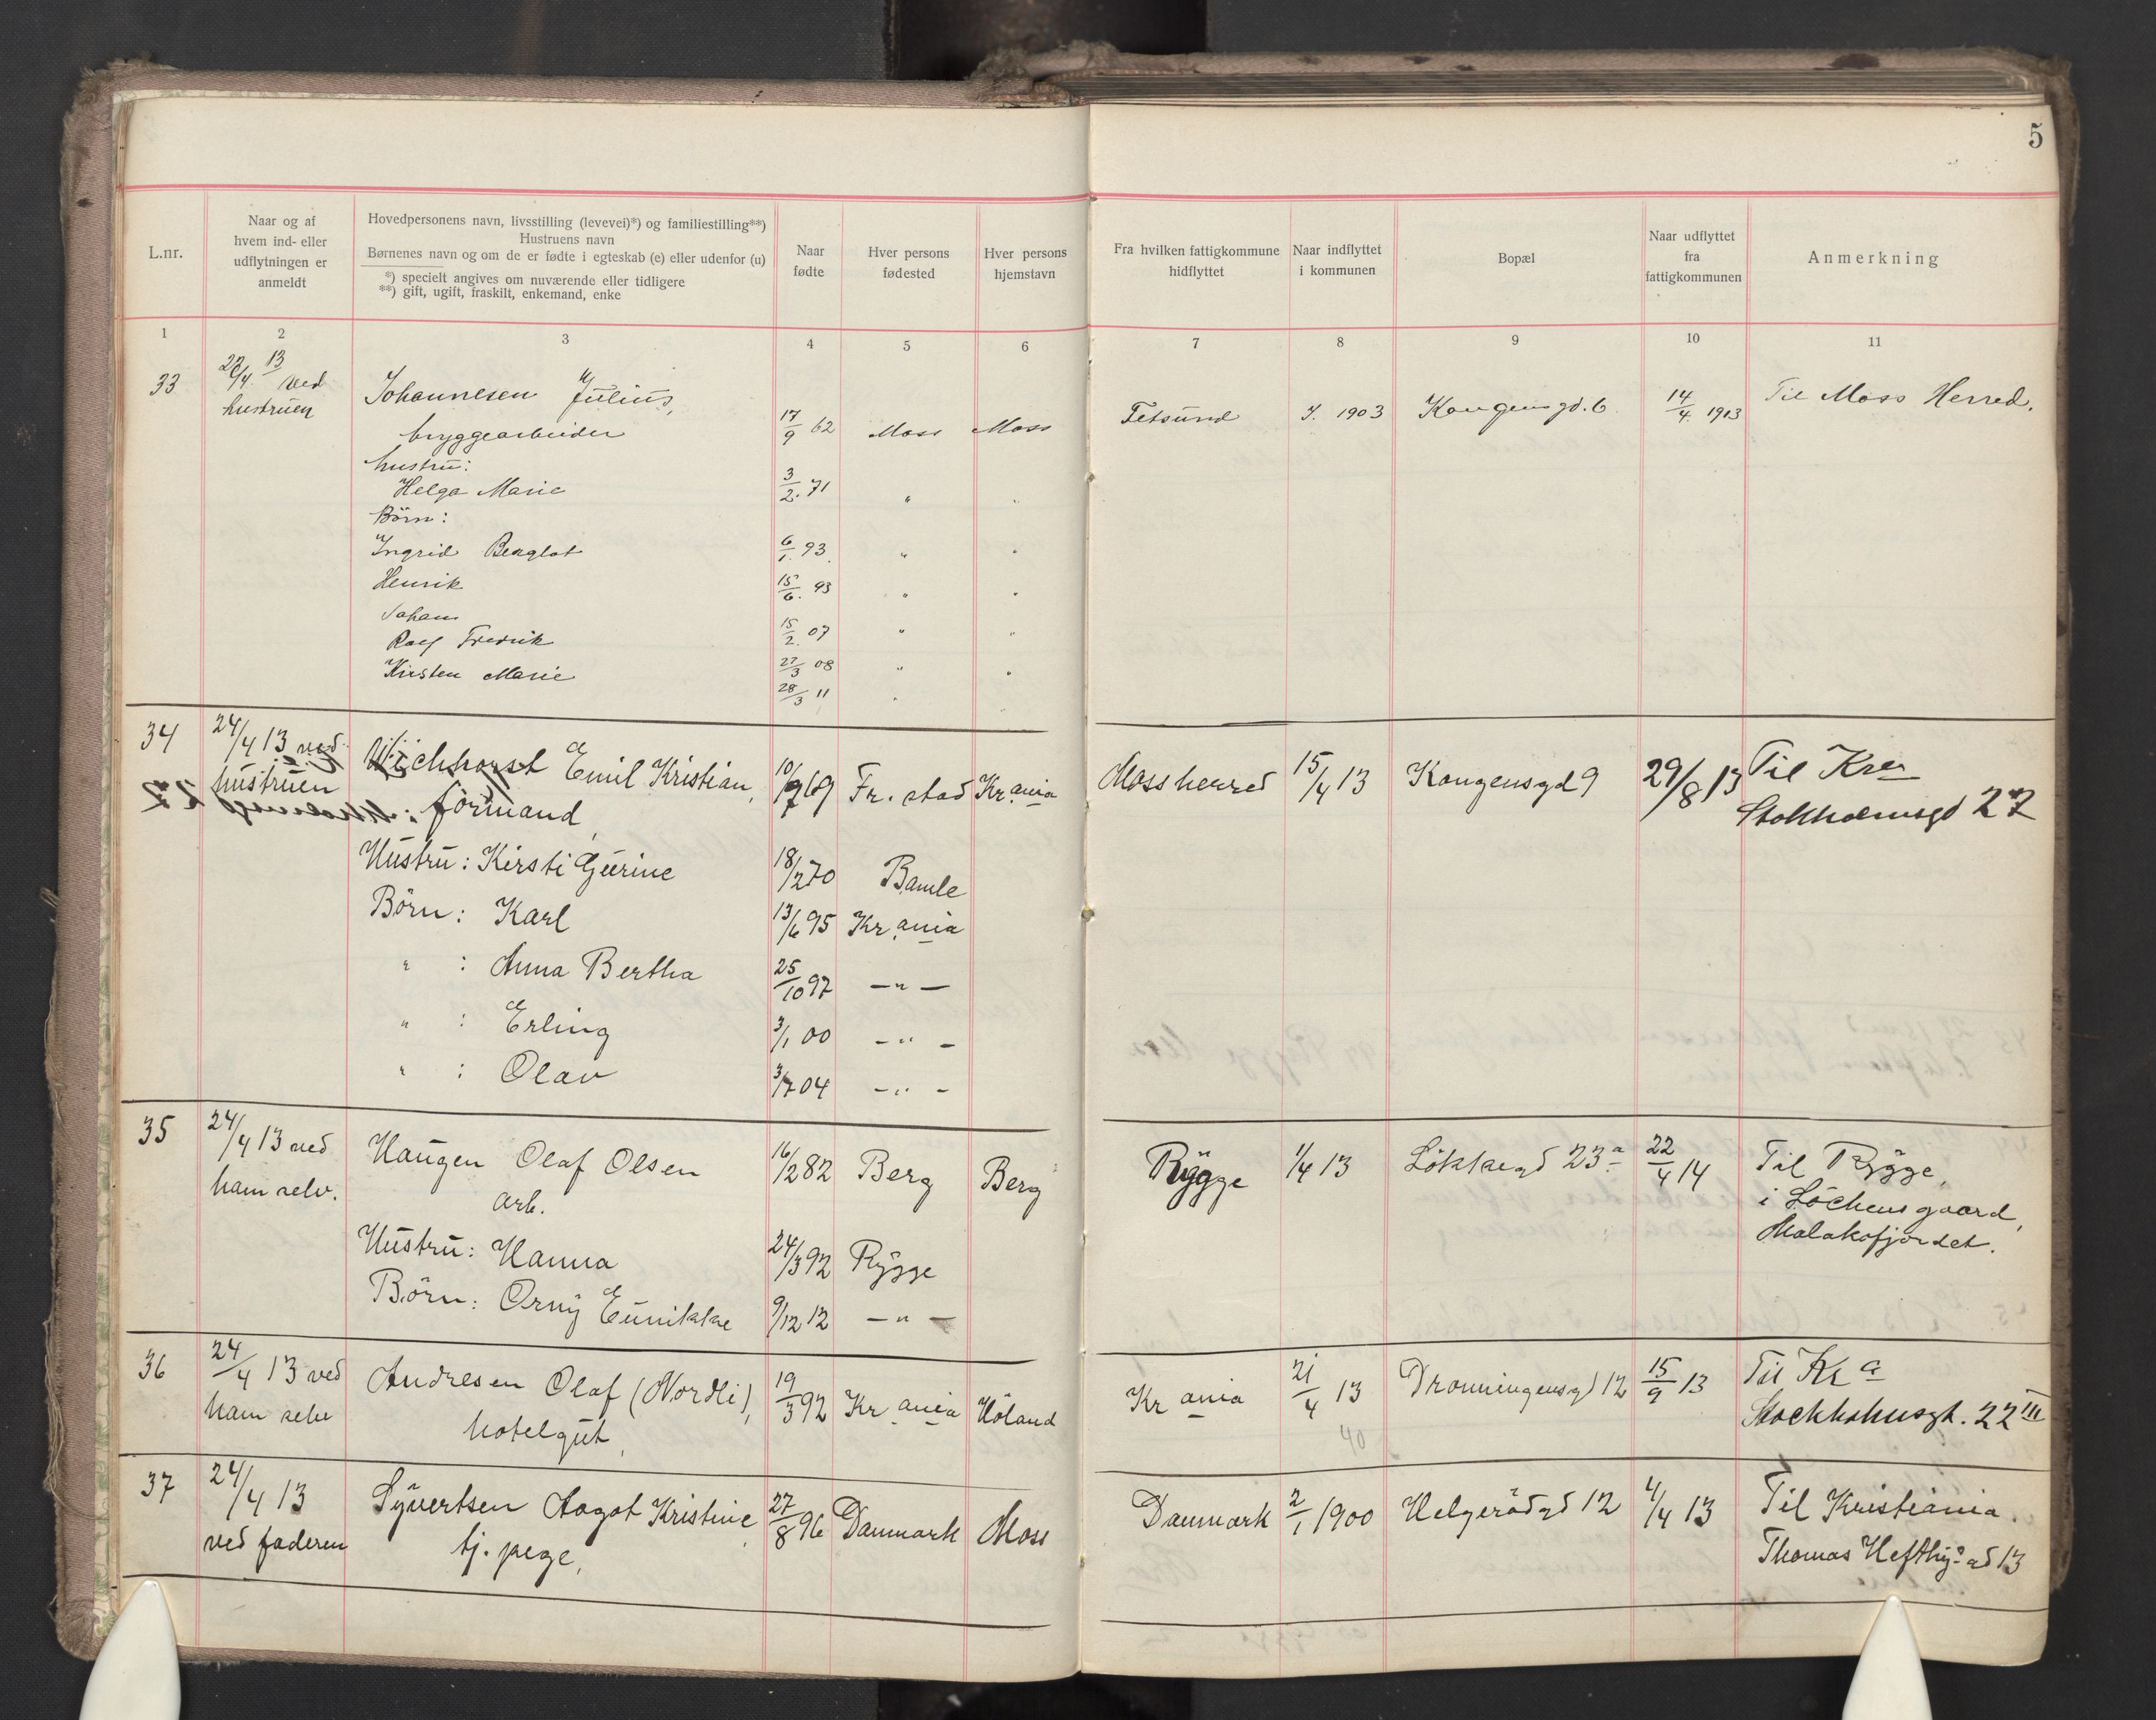 5
L.nr.
Naar og af
hvem ind- eller
udflytningen er
anmeldt
Hovedpersonens navn, livsstilling (levevei)*) og familiestilling**)
Hustruens navn
Børnenes navn og om de er fødte i egteskab (e) eller udenfor (u)
*) specielt angives om nuværende eller tidligere
**) gift, ugift, fraskilt, enkemand, enke
Naar
fødte
Hver persons
fødested
Hver persons
hjemstavn
Fra hvilken fattigkommune
hidflyttet
Naar indflyttet
i kommunen
Bopæl
Naar udflyttet
fra
fattigkommunen
Anmerkning
1 2 3 4 5 6 7 8 9 10 11
33 22/4 13 ved
hustruen
Johannesen Julius,
bryggearbeider 17/9 62 Moss Moss Fetsund 1903 Kongensgd. 6 14/4 1913 Til Moss Herred.
hustru:
Helga Marie 3/2. 71 "
Børn:
Ingrid Bergliot 6/1. 93 "
Henrik 15/6. 93 "
Johan 15/2. 07 "
Rolf Fredrik 27/3 08 "
Kirsten Marie 28/3 11
34 24/4 13 ved
hustruen
Wichhorst Emil Kristian, 10/7 69 Fr.stad Kr.ania Moss herred 15/4 13 Kongensgd 9 29/8 13 Til Kra
formand Stokholmsgd 22
Hustru: Kirsti Gurine 18/2 70 Bamle
Børn: Karl 13/6 95 Kr.ania
" : Anna Bertha 25/10 97 — " —
" : Erling 3/1 00 — " —
" : Olav 3/7 04 — " —
35 24/4 13 ved
ham selv.
Haugen Olaf Olsen 16/2 82 Berg Berg Rygge 1/4 13 Løkkegd 23a 22/4 14 Til Rygge,
arb. i Löchens gaard,
Malakofjordet.
Hustru: Hanna 24/3 92 Rygge
Børn: Orny Eunikke 9/12 12 — " —
36 24/4 13 ved
ham selv
Andresen Olaf (Nordli), 19/3 92 Kr.ania Höland Kr.ania 21/4 13 Dronningensgd 12 15/9 13 Til Kra
hotelgut, 40 Stockholmsgt. 22 III
37 24/4 13
ved faderen
Syvertsen Aagot Kristine, 27/8 96 Danmark Moss Danmark 2/1 1900 Helgerödgd 12 4/4 13 Til Kristiania.
tj. pege, Thomas Hefthys gd 13